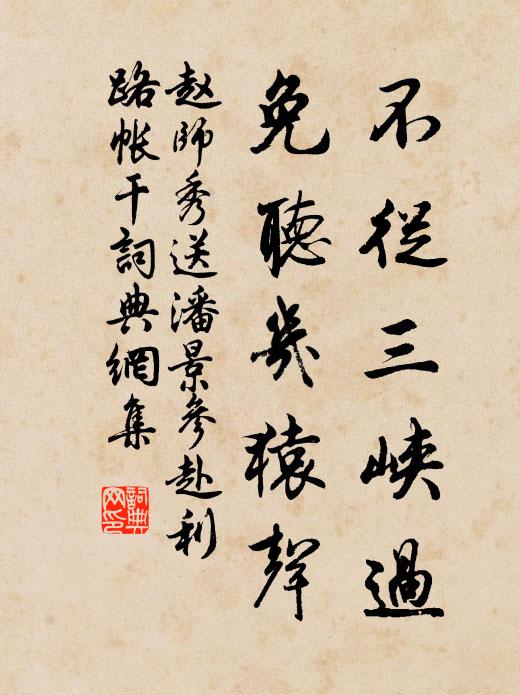 不從三峽過
免聽幾猿聲
赵師秀送潘景參赴利
路帐干詞典網集
詞典网印